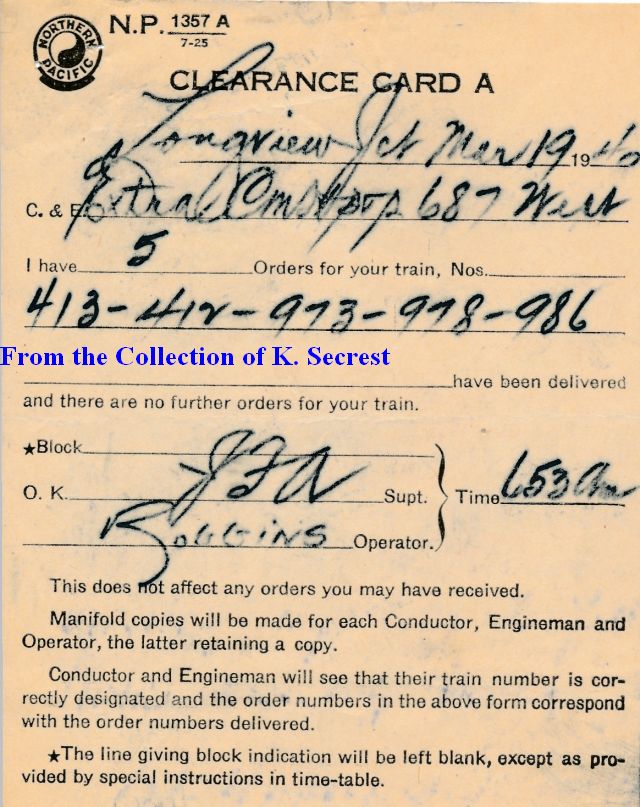 NORTHERN PACIFIC
N.P. 1357 A
7-25
CLEARANCE CARD A
Longview Jct Mar 19 1940
C. & E. Extra CMStP&P 687 West
I have 5 Orders for your train, Nos.
413-412-973-978-986
From the Collection of K. Secrest
have been delivered
and there are no further orders for your train.
★Block
O. K. JFA Supt. Time 653 Am
Robbins Operator.
This does not affect any orders you may have received.
Manifold copies will be made for each Conductor, Engineman and
Operator, the latter retaining a copy.
Conductor and Engineman will see that their train number is cor-
rectly designated and the order numbers in the above form correspond
with the order numbers delivered.
★The line giving block indication will be left blank, except as pro-
vided by special instructions in time-table.